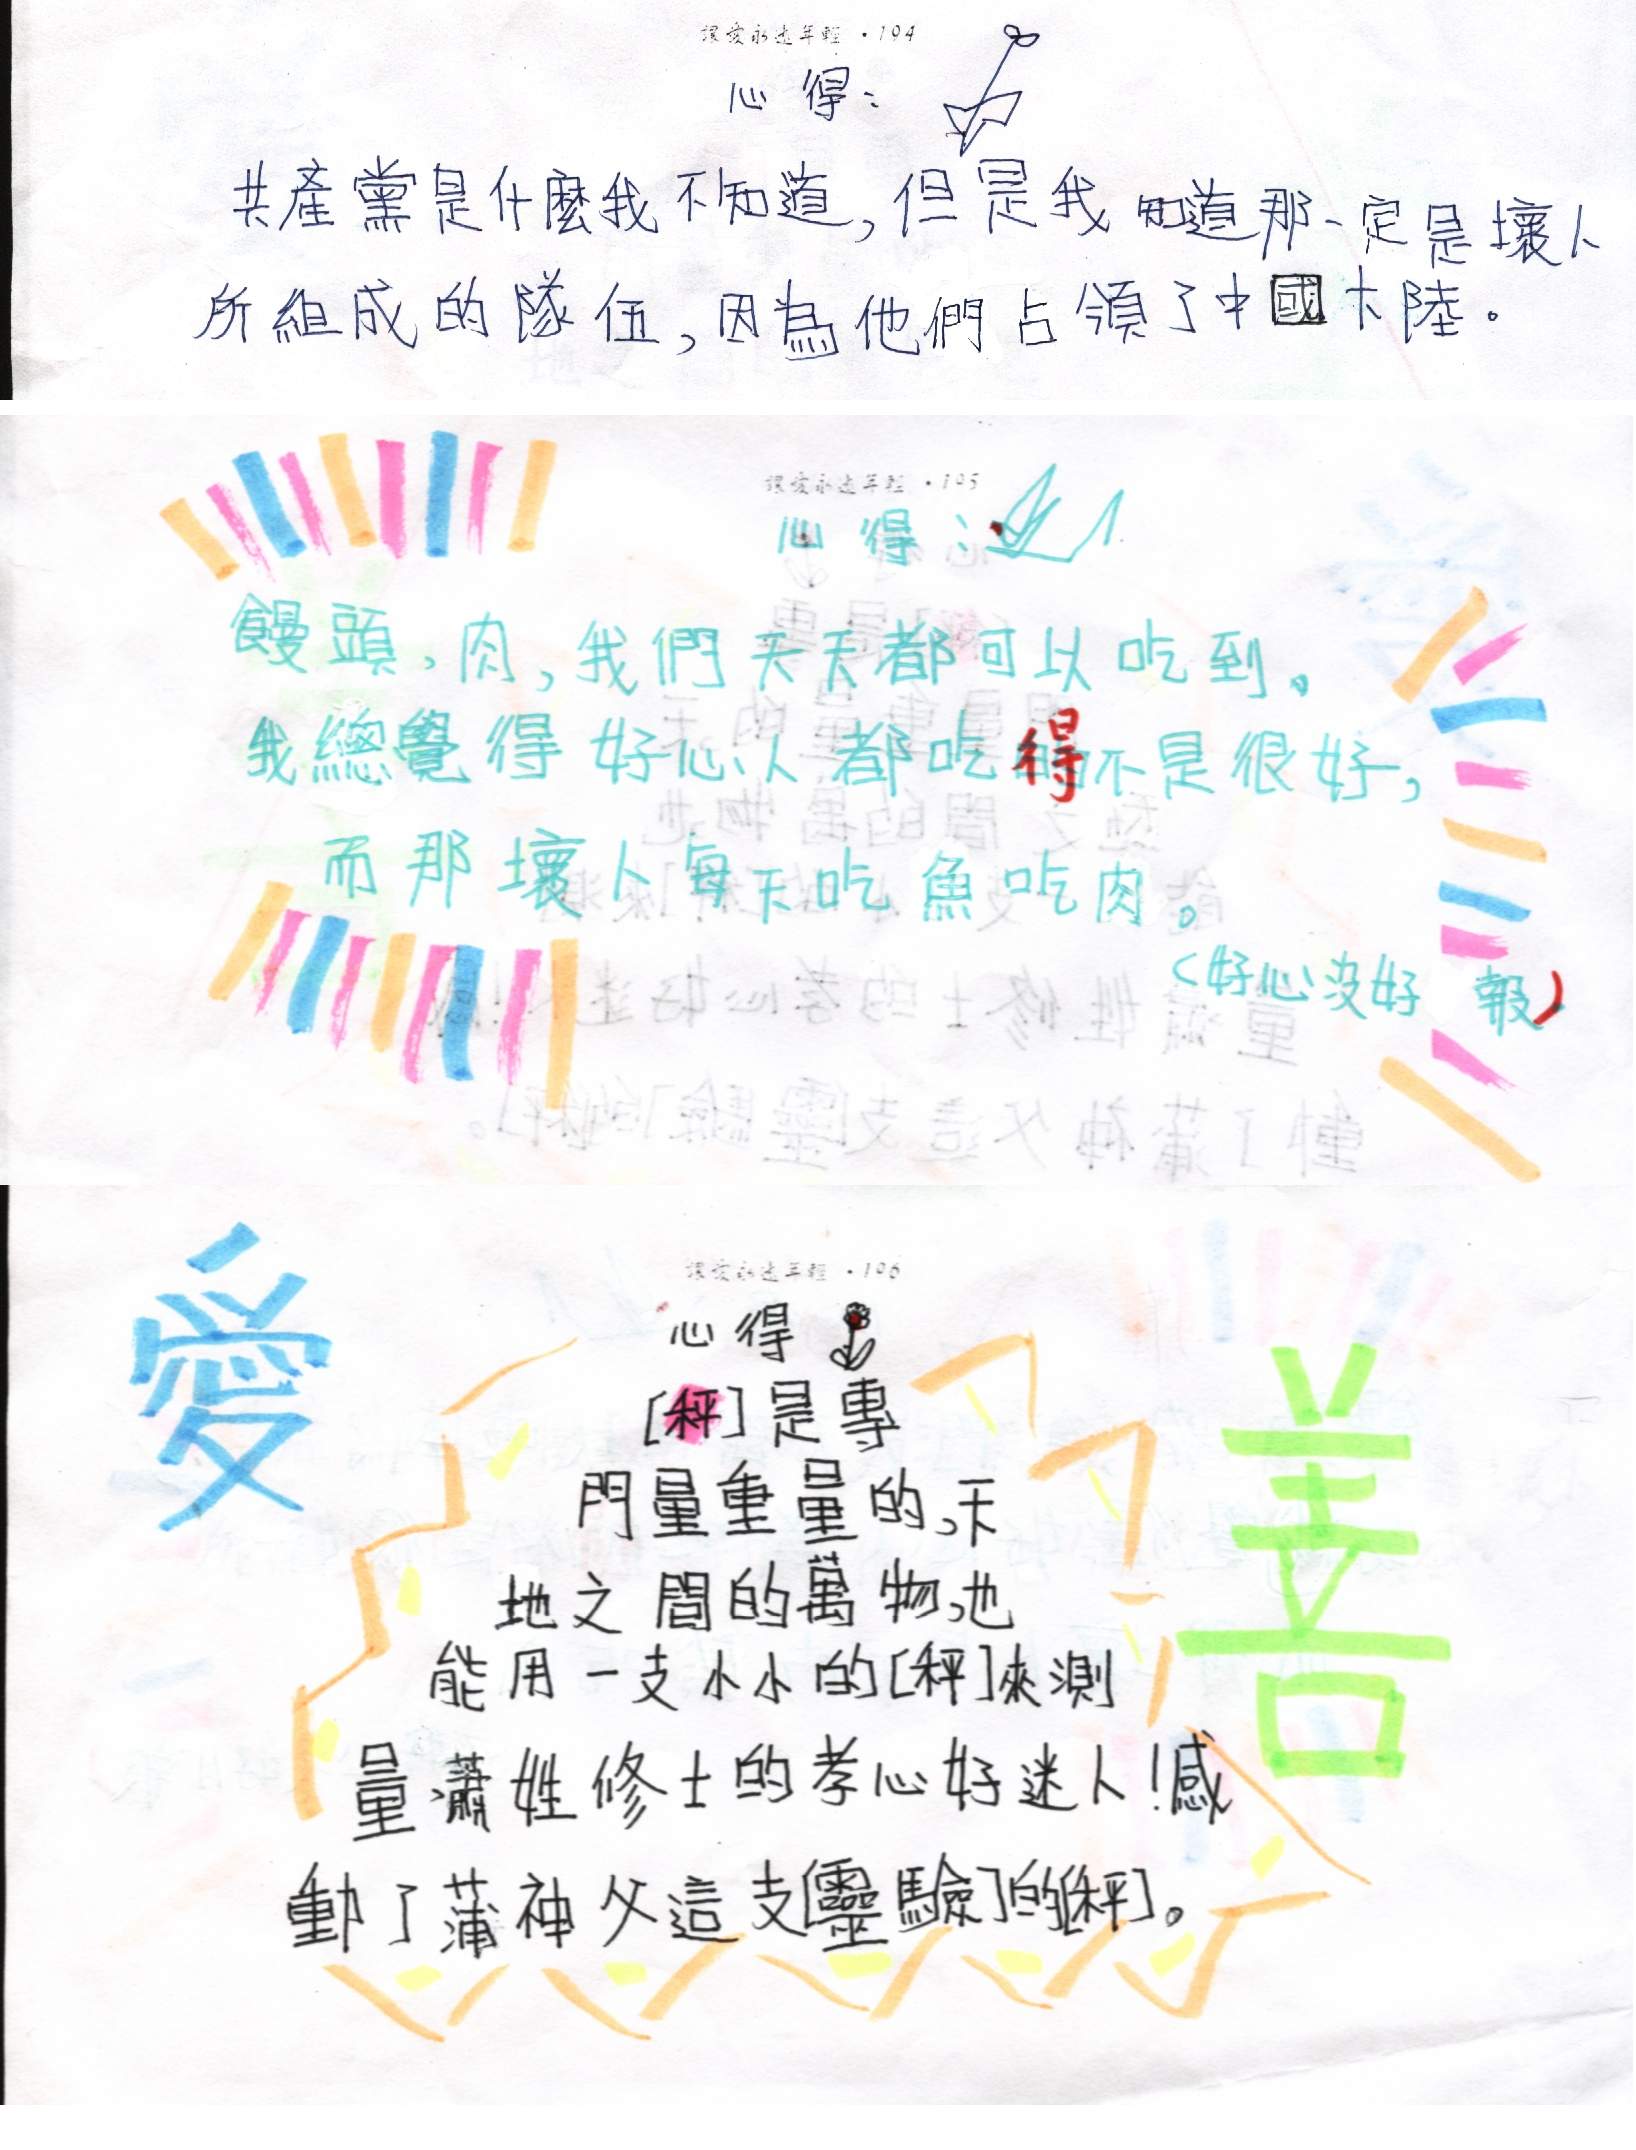 讓愛永遠年輕 · 194
心得：
共產黨是什麼我不知道，但是我知道那一定是壞人
所組成的隊伍，因為他們占領了中國大陸。
讓愛永遠年輕 · 195
心得：
饅頭、肉，我們天天都可以吃到。
我總覺得好心人都吃得不是很好，
而那壞人每天吃魚吃肉。
（好心沒好報）
愛
善
讓愛永遠年輕 · 196
心得
[秤]是專
門量重量的，天
地之間的萬物，也
能用一支小小的[秤]來測
量瀟姓修士的孝心好迷人！感
動了蒲神父這支[靈驗]的[秤]。